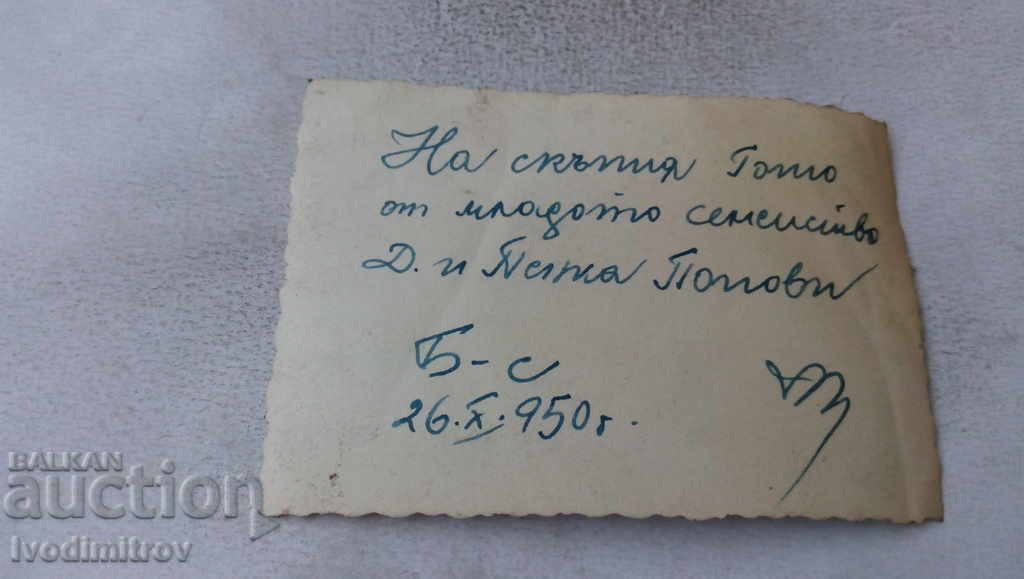 На скъпия Гошо
от младото семейство
Д. и Пенка Попови
Б-с
26.X.950г.
BALKAN
auction
Ivodimitrov